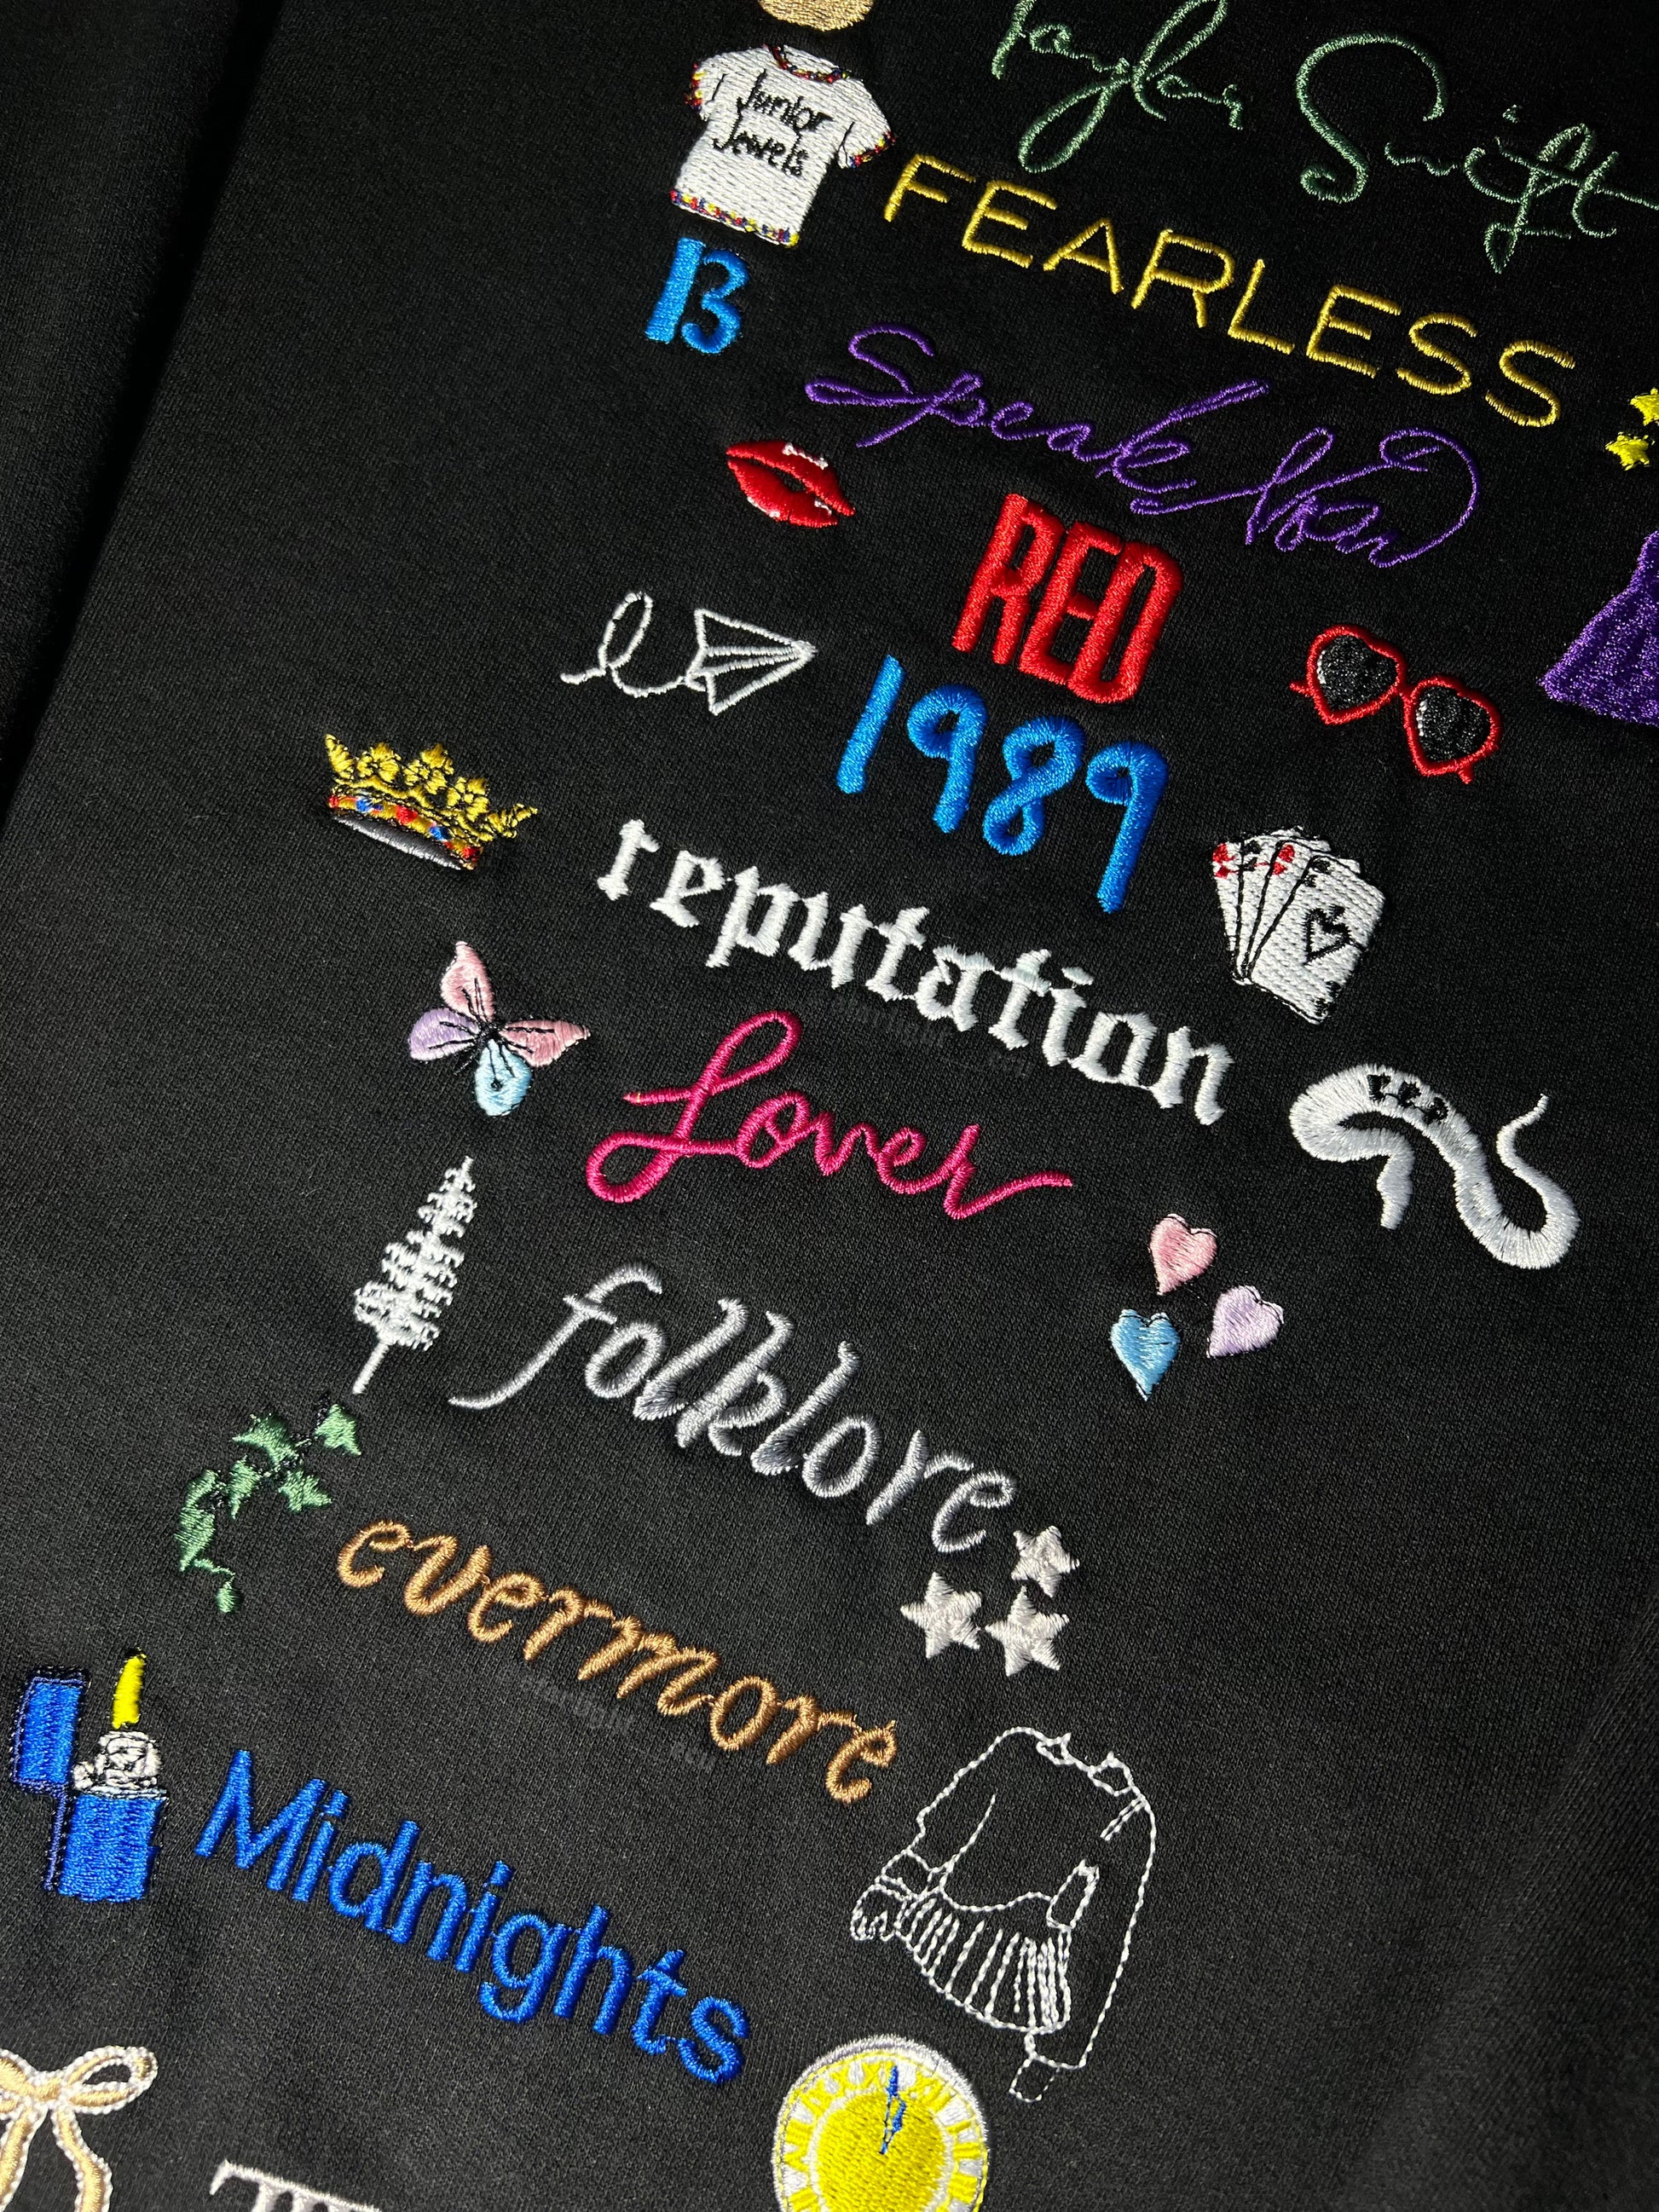 Taylor Swift
Junior
Jewels
FEARLESS
13
Speak Now
RED
1989
reputation
Lover
folklore
evermore
Midnights